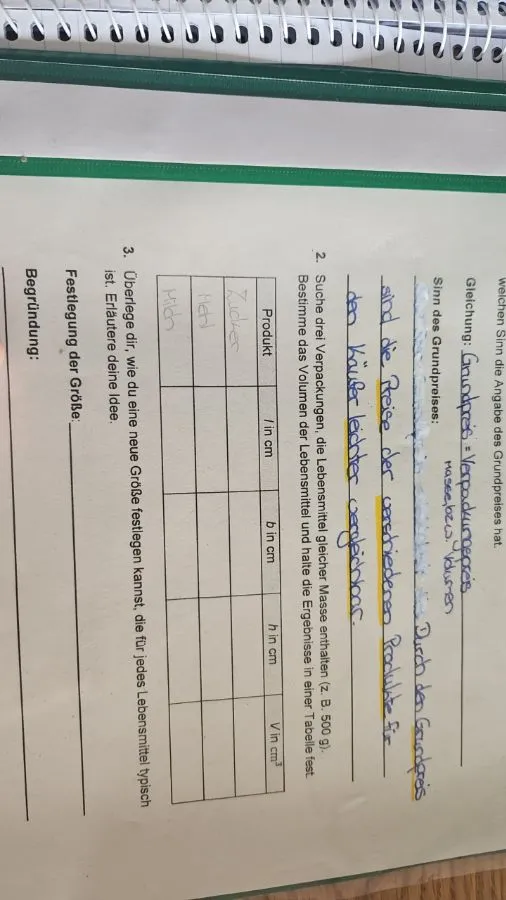 welchen Sinn die Angabe des Grundpreises hat.
Gleichung: Grundpreis = Verpackungspreis
Masse, bzw. Volumen
Sinn des Grundpreises: Durch den Grundpreis
sind die Preise der verschiedenen Produkte für
den Käufer leichter vergleichbar.
2. Suche drei Verpackungen, die Lebensmittel gleicher Masse enthalten (z. B. 500 g).
Bestimme das Volumen der Lebensmittel und halte die Ergebnisse in einer Tabelle fest.
Produkt l in cm b in cm h in cm V in cm³
Zucker
Mehl
Milch
3. Überlege dir, wie du eine neue Größe festlegen kannst, die für jedes Lebensmittel typisch
ist. Erläutere deine Idee.
Festlegung der Größe:
Begründung: